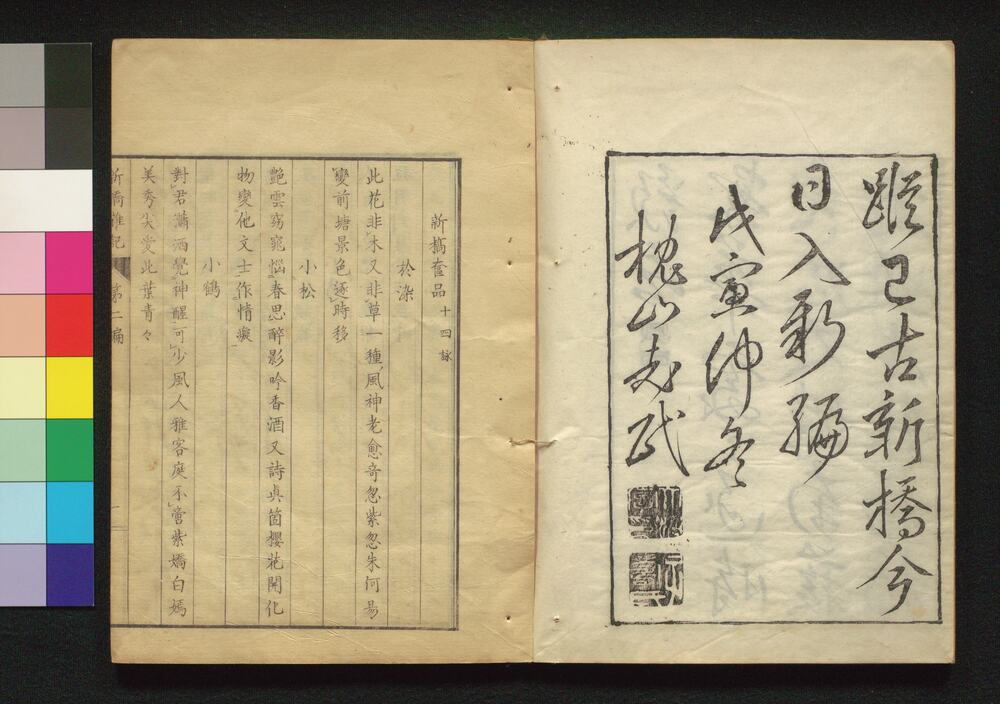 蹤已古新橋今
日入新編
戊寅仲冬
槐山老民
新橋奩品十四詠
於染
此花非木又非草一種風神老愈奇忽紫忽朱何易
變前塘景色逐時移
小松
艶雲窈窕惱春思醉影吟香酒又詩眞箇櫻花開化
物變他文士作情癡
小鶴
對君瀟洒覺神醒可少風人雅客庭不啻紫嬌白嫣
美秀尖愛此葉青々
新橋雜記 第二編